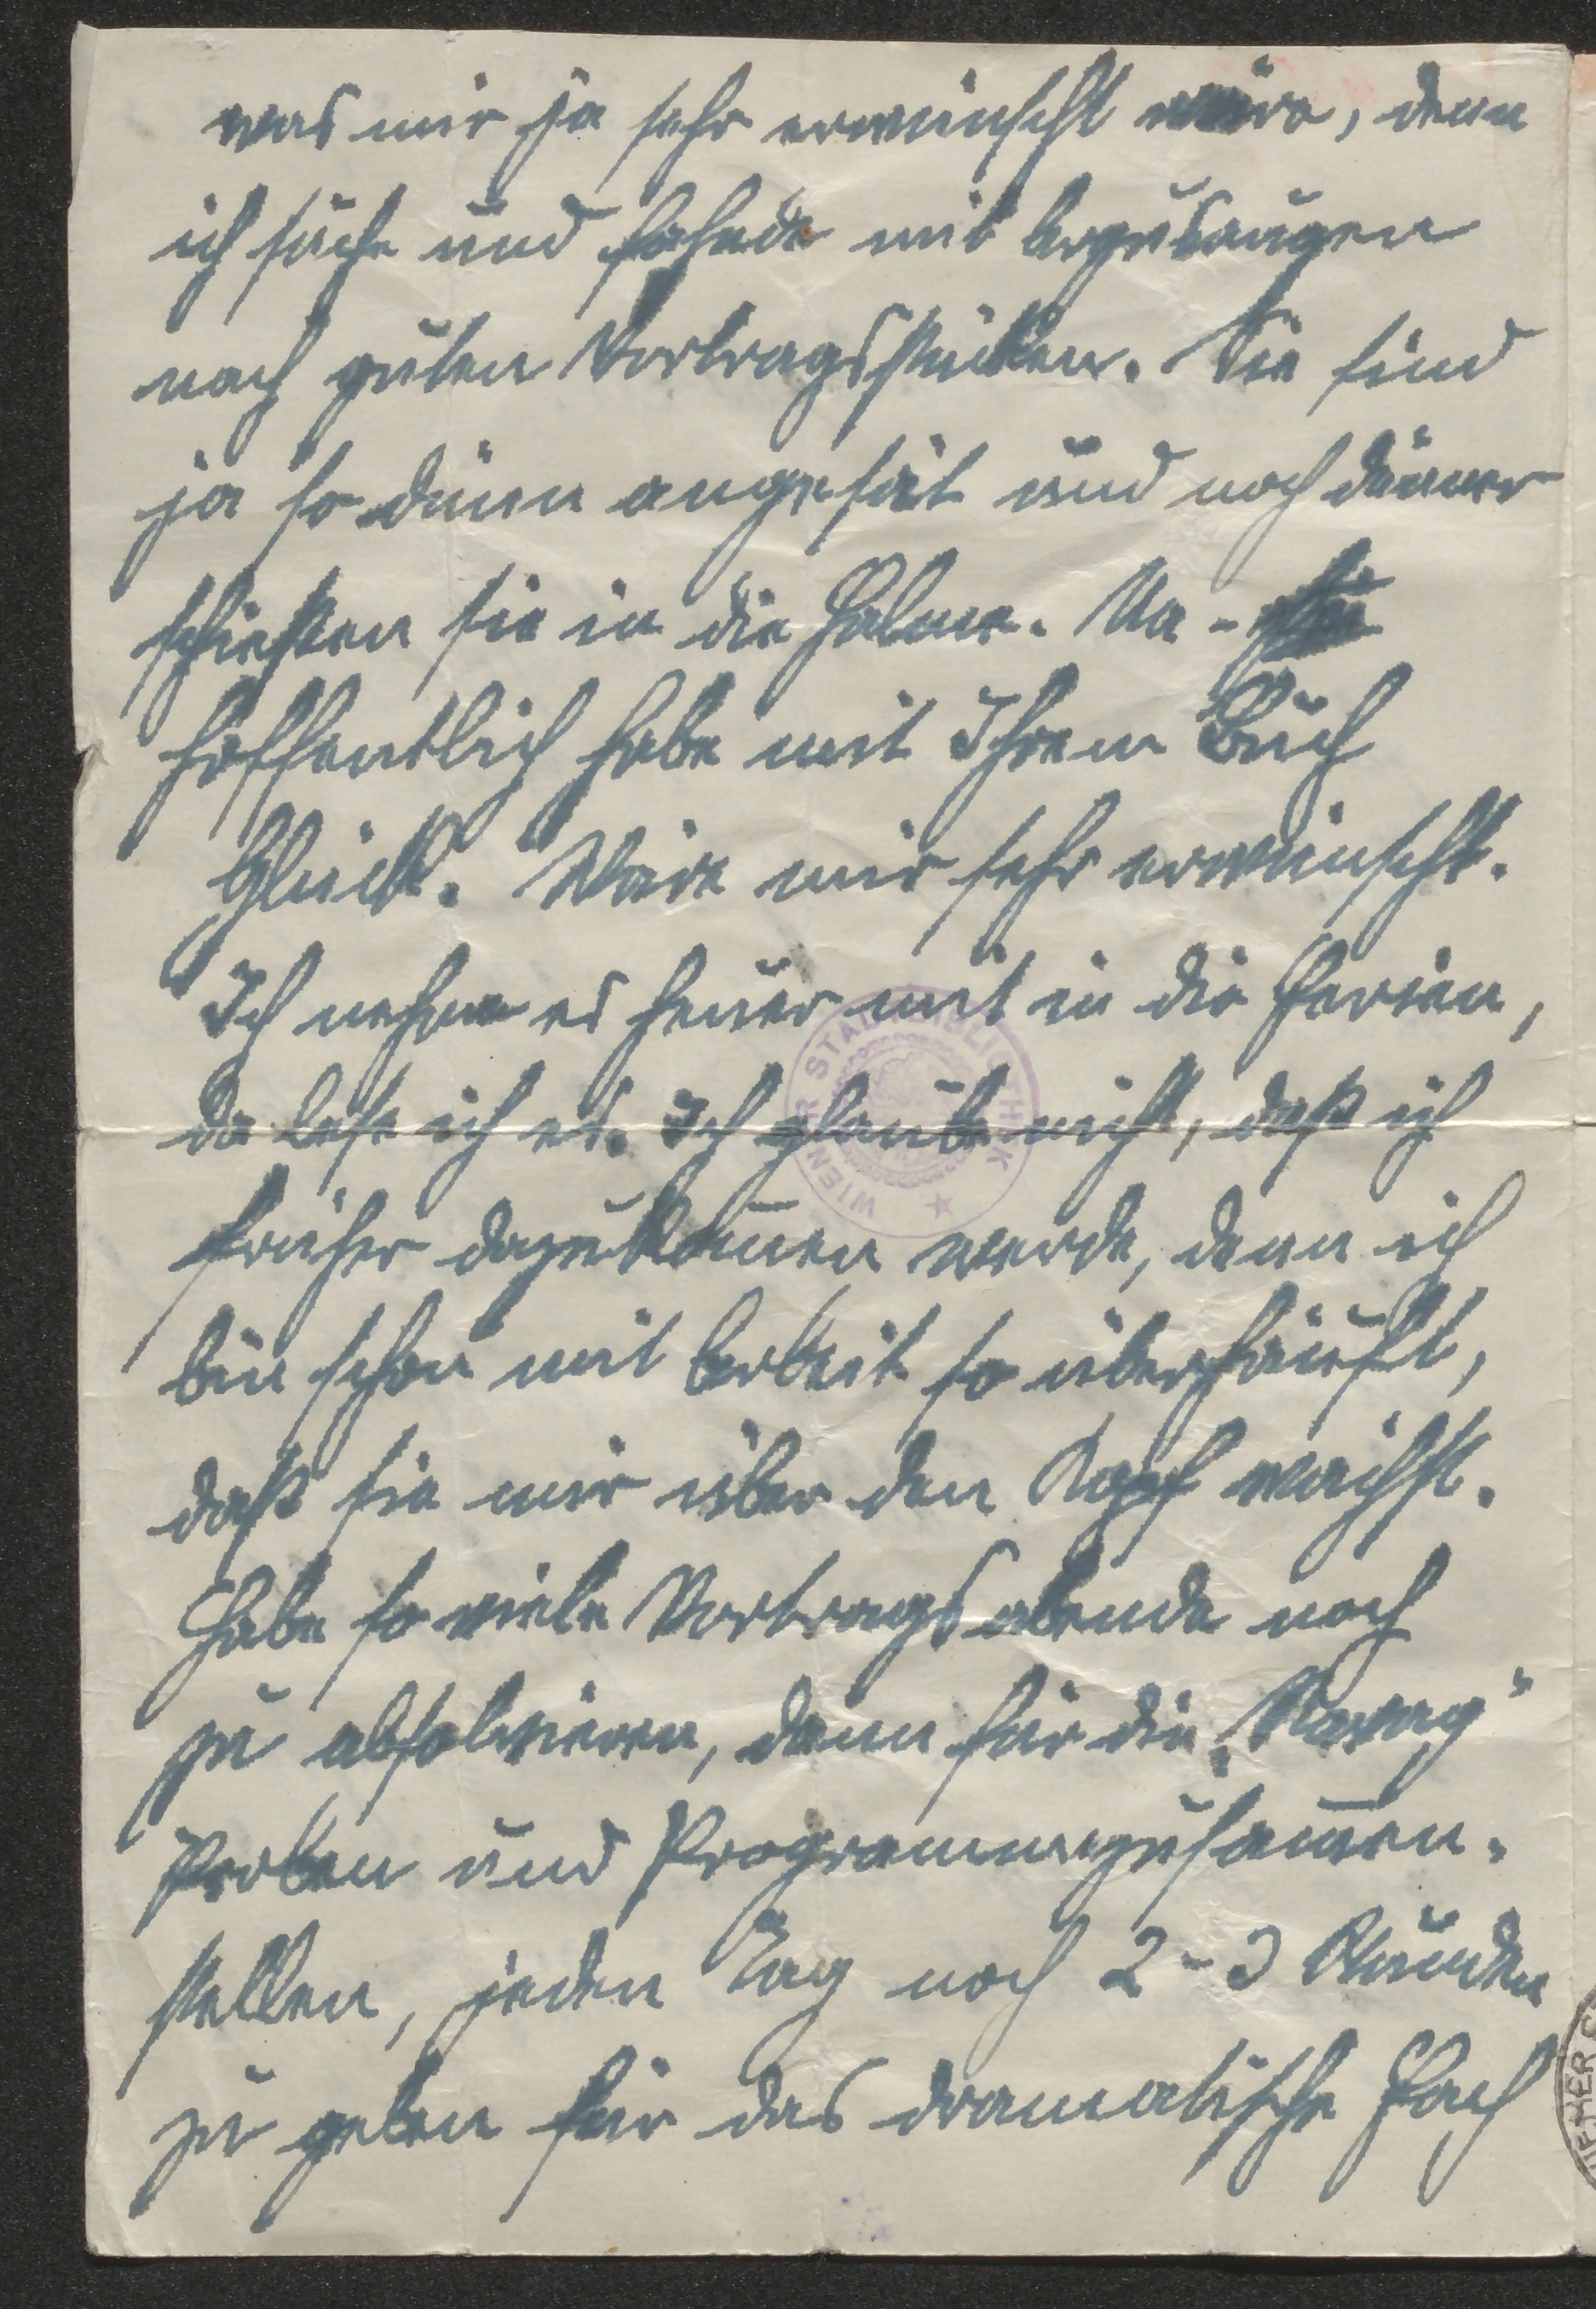 was mir ja sehr erwünscht wäre, denn
ich suche und fahnde mit
nach guten Vortragsstücken. Sie sind
ja so dünn angesät und noch dünner
schießen sie in die Halme. Na -
hoffentlich habe mit Ihrem Buch
Glück. Wäre mir sehr erwünscht.
Ich nehme es heuer mit in die Ferien,
da lese ich es. Ich glaube nicht, daß ich
früher dazukom̅en werde, denn ich
bin schon mit Arbeit so überhäuft,
daß sie mir über den Kopf wächst.
Habe so viele Vortragsabende noch
zu absolvieren, dann für die „Ravag"
Proben und Programmezusam̅en-
stellen, jeden Tag noch 2-3 Stunden
zu geben für das dramatische Fach
WIENER STADTBIBLIOTHEK